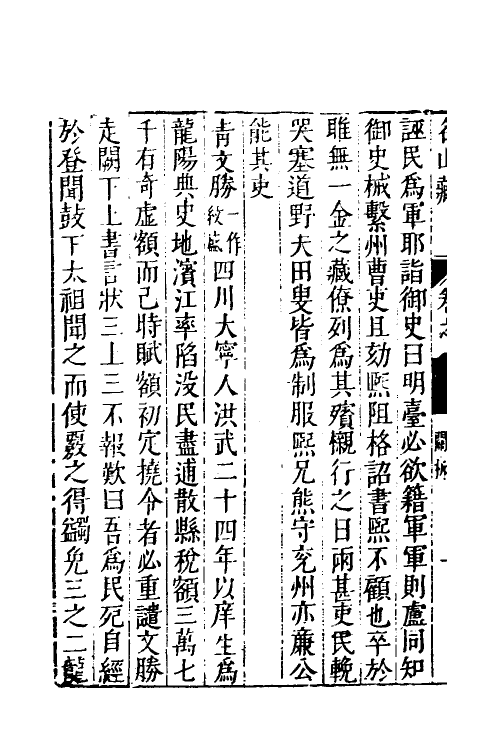 誣民爲軍耶詣御史曰明臺必欲籍軍軍則盧同知
御史械繫州曹吏且劾熈阻格詔書熈不顧也卒於
睢無一金之藏僚列爲其殯櫬行之日雨甚吏民輓
哭塞道野夫田叟皆爲制服熈兄熊守兖州亦廉公
能其吏
青文勝一作文蔵四川大寧人洪武二十四年以庠生爲
龍陽典史地濱江率陷没民盡逋散縣稅額三萬七
千有奇虚額而已時賦額初定撓令者必重譴文勝
走闕下上書言狀三上三不報歎曰吾爲民死自經
於登聞鼓下太祖聞之而使覈之得蠲免三之二龍